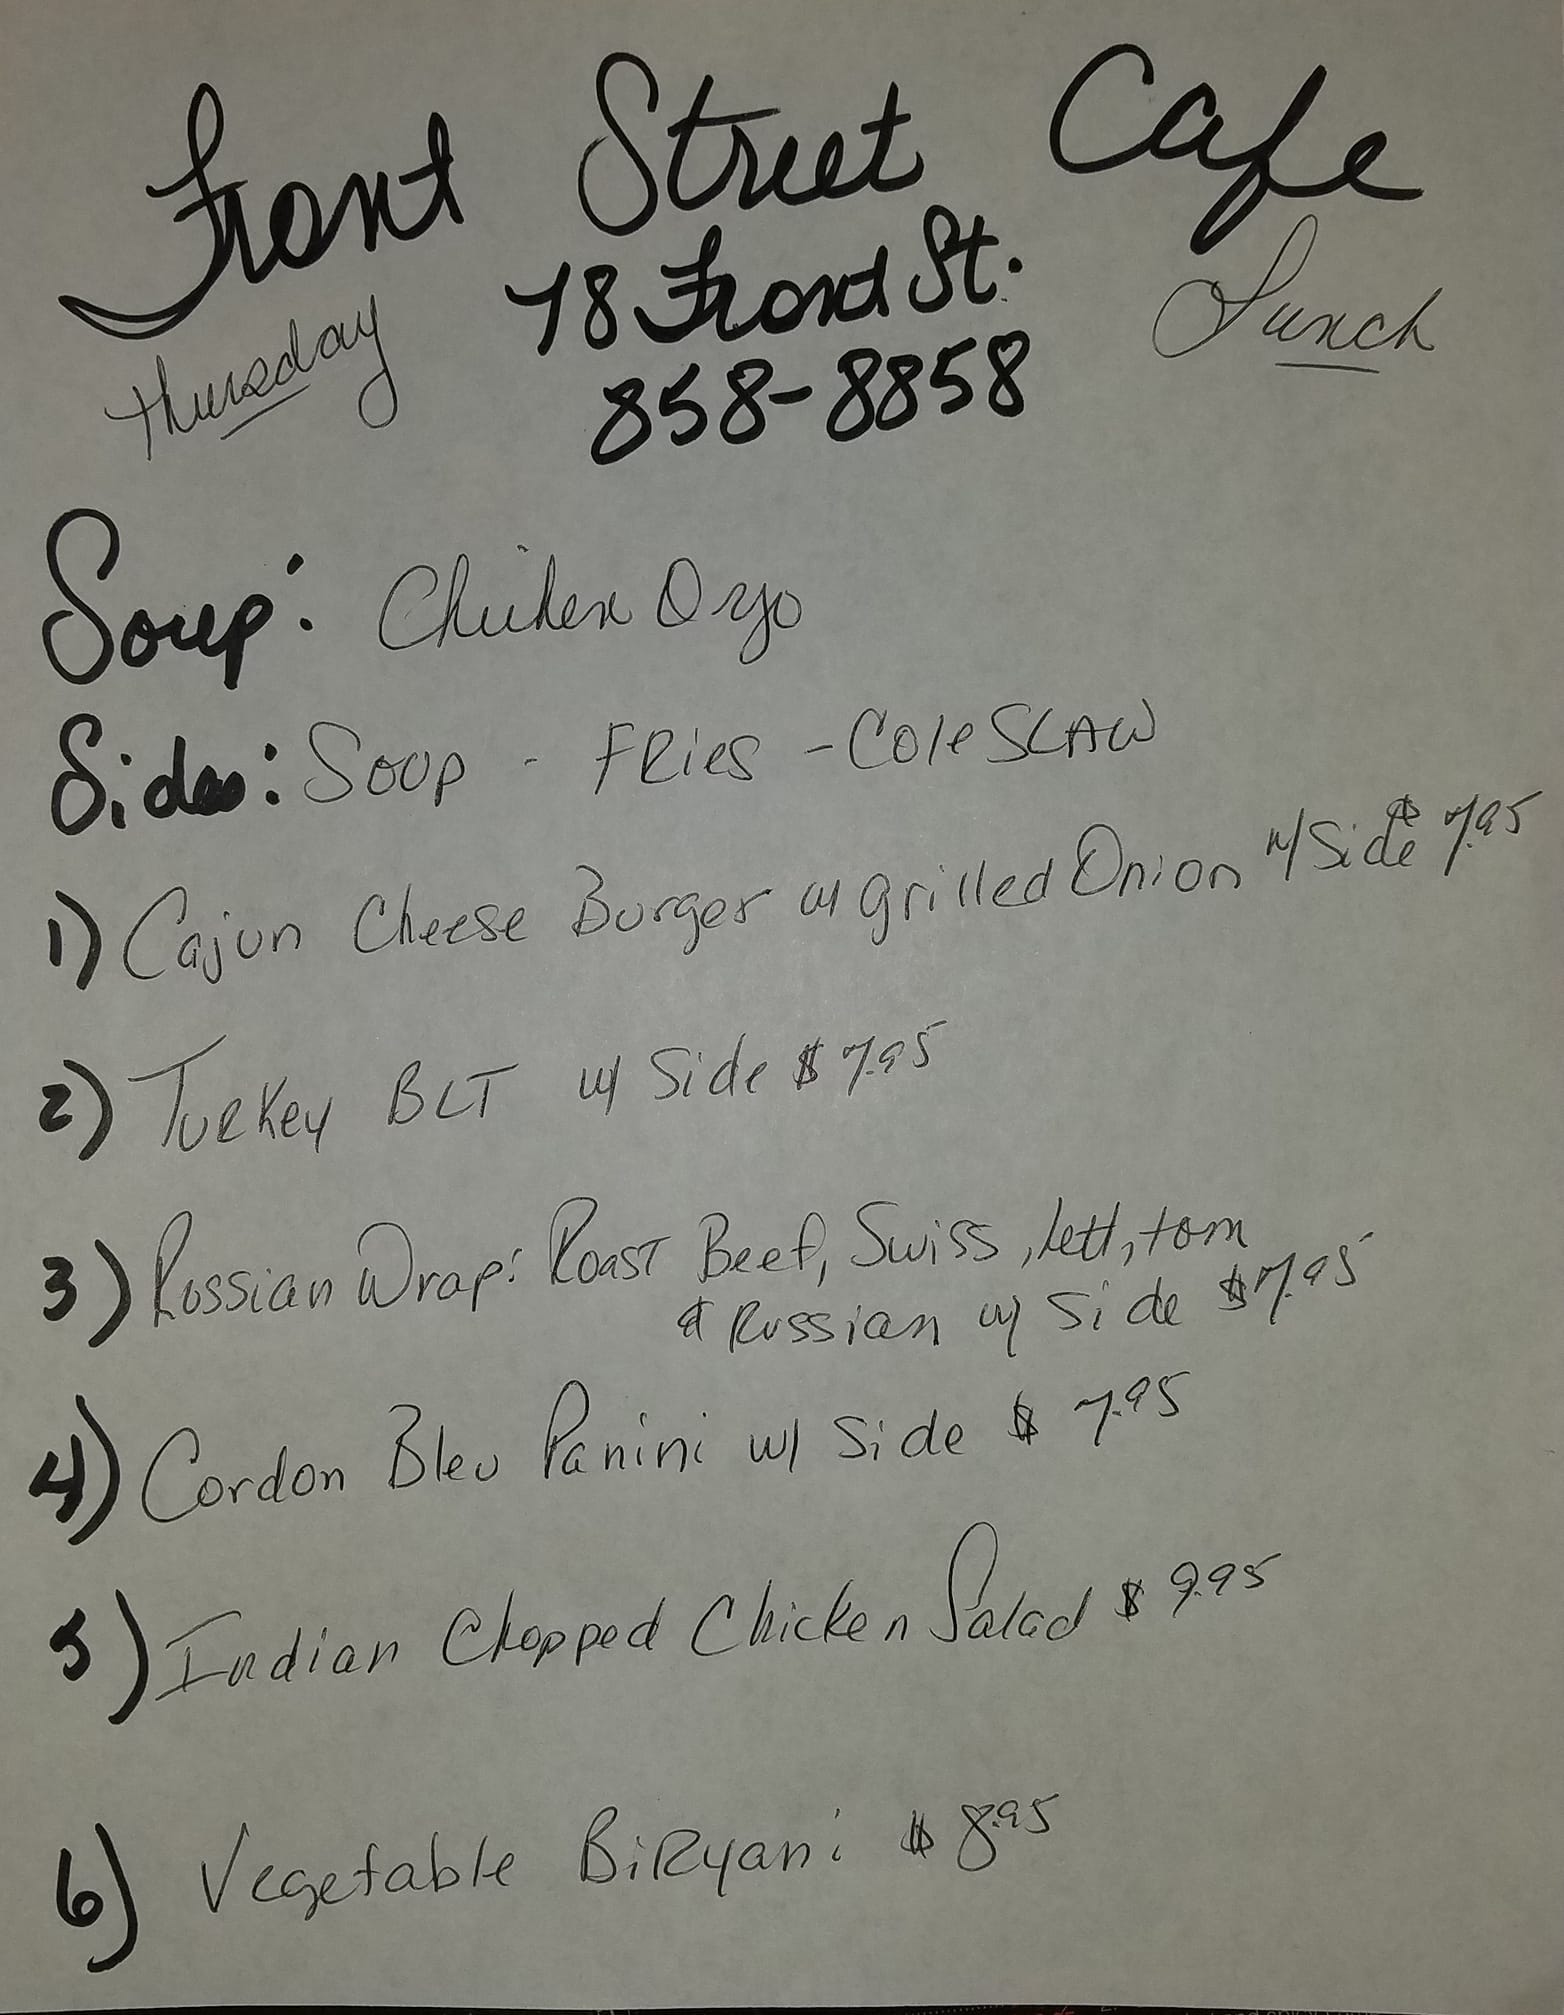 Front Street Cafe
78 Front St.
Thursday
Lunch
858-8858
Soup: Chicken Orzo
Sides: Soup - Fries - ColeSLAW
1) Cajun Cheese Burger w/ grilled Onion w/ Side $7.95
2) Turkey BLT w/ Side $7.95
3) Russian Wrap: Roast Beef, Swiss, lett, tom
& Russian w/ Side $7.95
4) Cordon Bleu Panini w/ Side $7.95
5) Indian Chopped Chicken Salad $9.95
6) Vegetable BiRyani $8.95